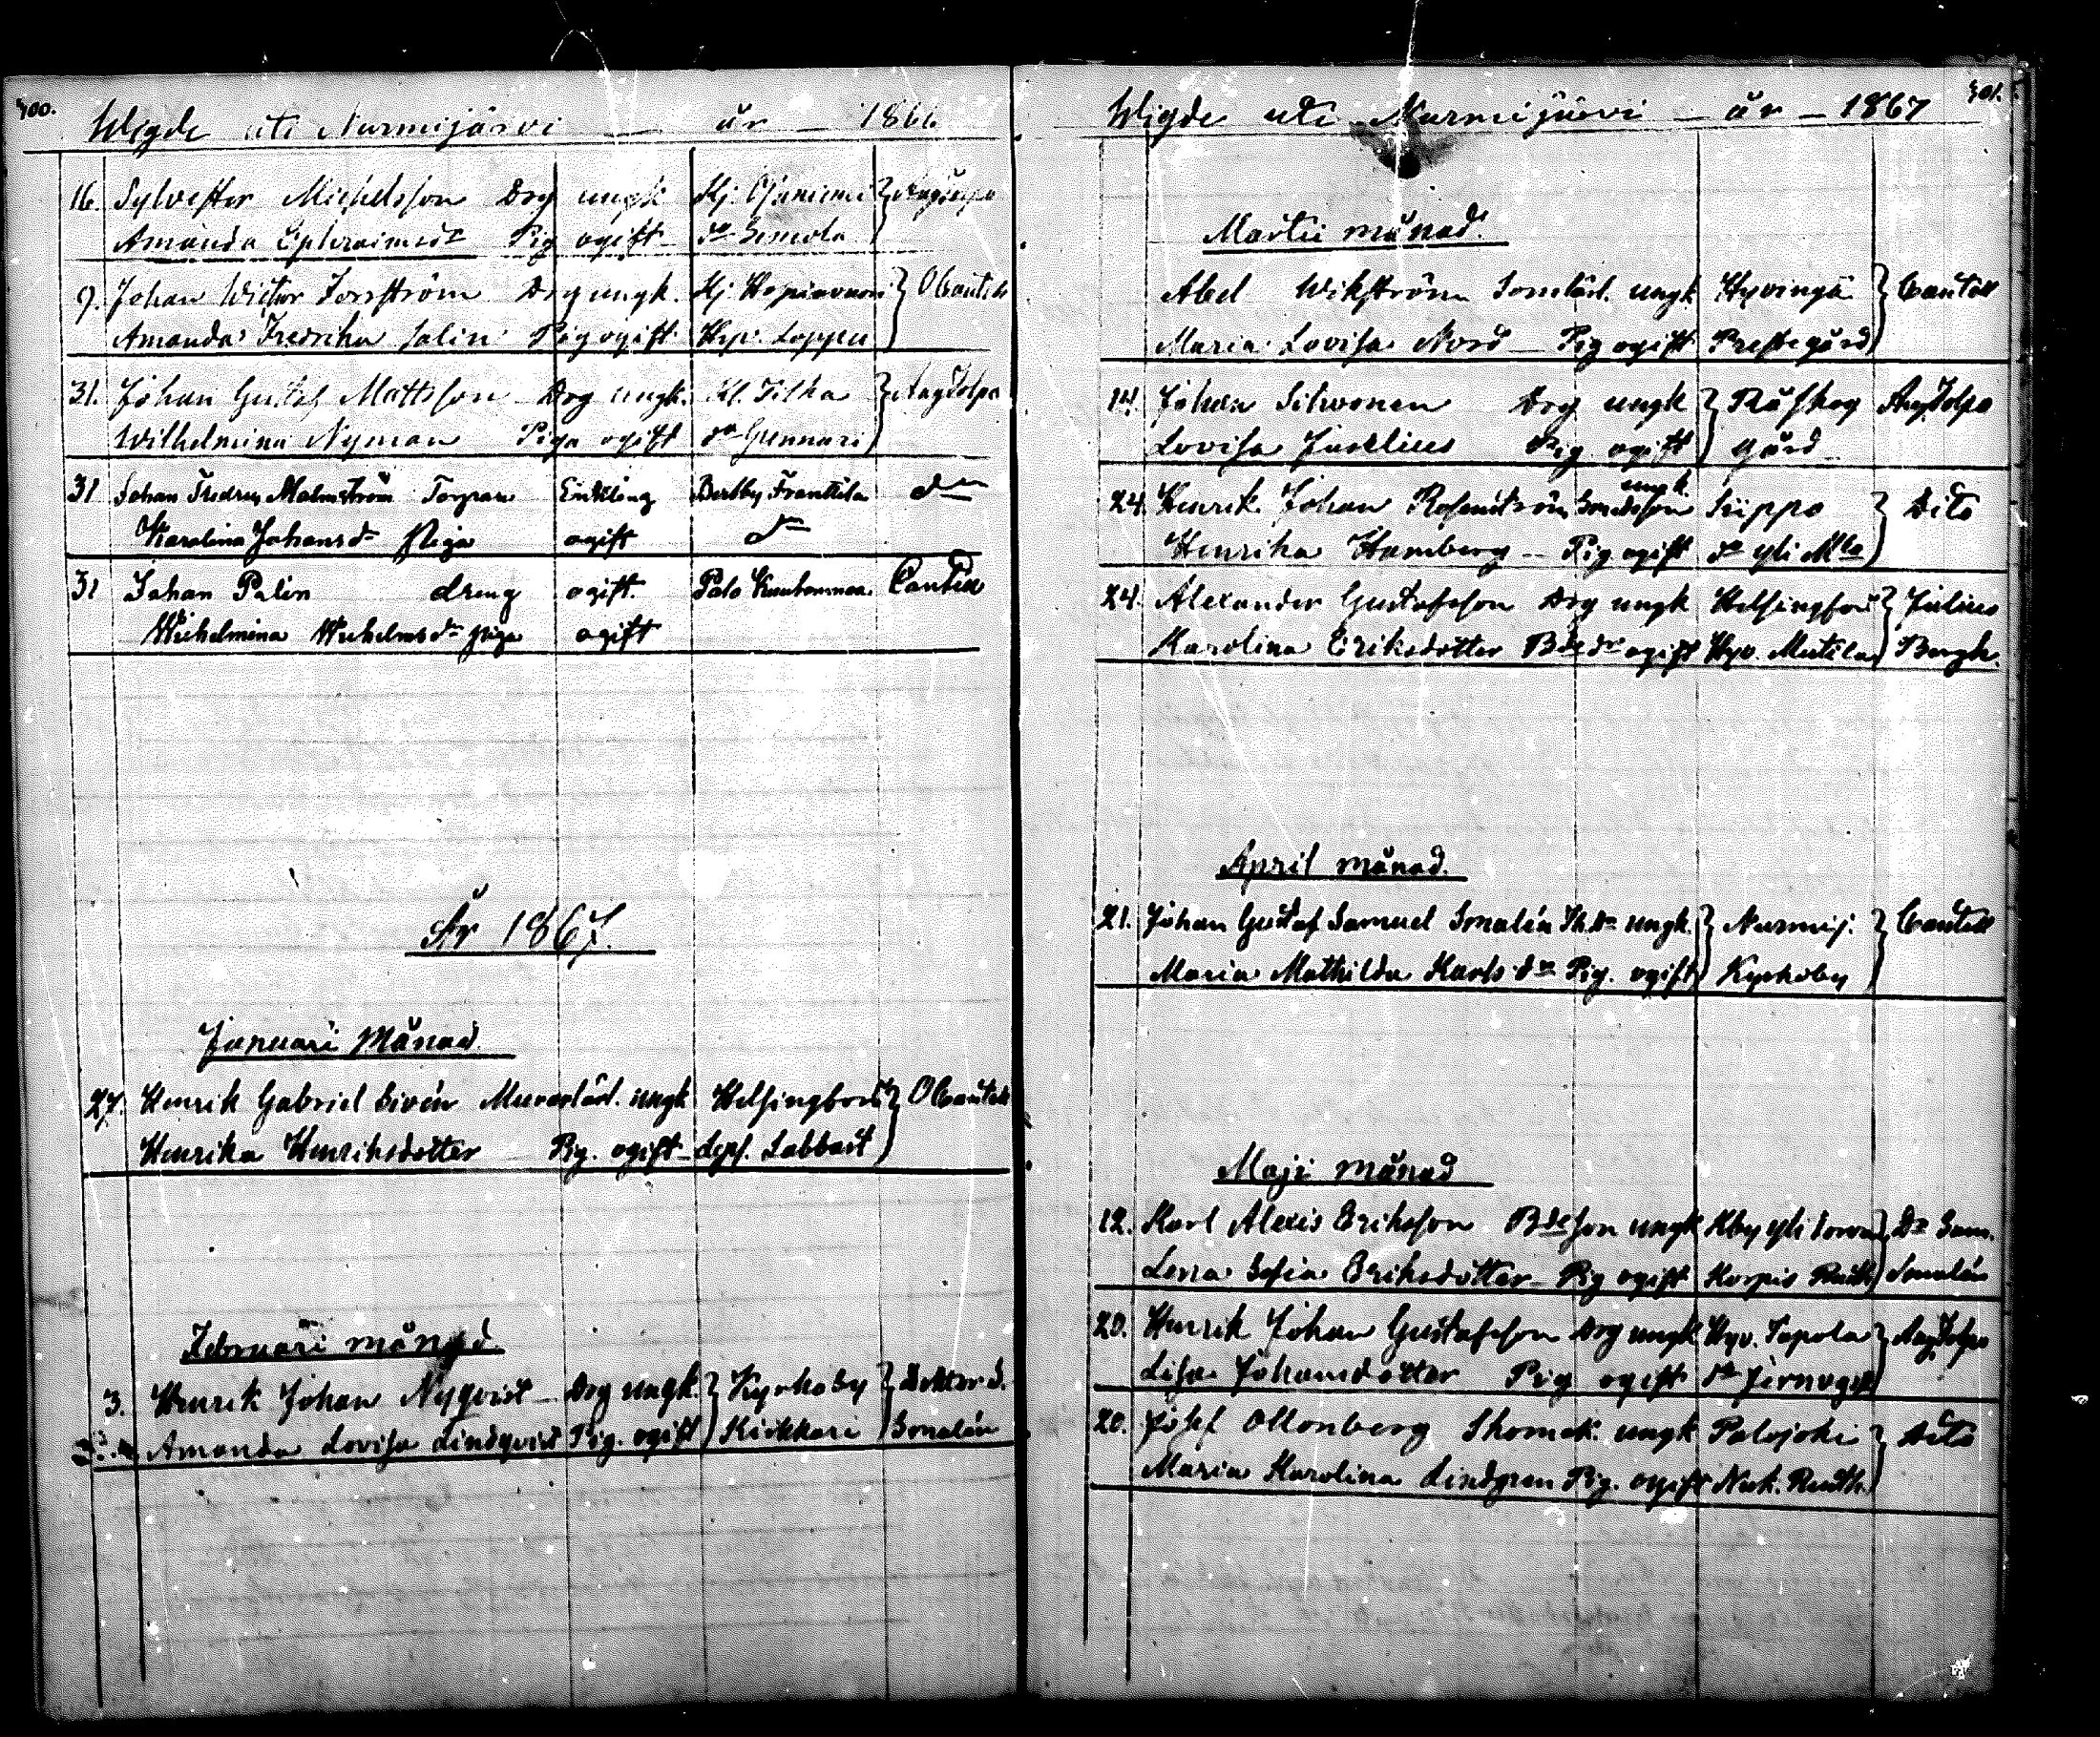 400.
Wigde uti Nurmijärvi — år — 1866
16. Sylvester Michelsson Drg ungk Hj.
Amanda Ephraimsdr Pig ogift do Simola
9. Johan Wictor Forsström Drg ungk. Hj. O Cantell
Amanda Fredrika Salin Pig ogift Hyv. Loppen
31. Johan Gustaf Mattsson Drg ungk. Kl. Tilka
Wilhelmina Nyman Piga ogift do Gunnari
31 Johan Fredrik Malmström Torpare Enkling Perttby Franttila do
Karolina Johansdr Piga ogift do
31 Johan Palin dreng ogift. Palo Cantell
Wilhelmina Wilhelmsdr piga ogift
År 1867.
Januari Månad.
27. Henrik Gabriel Sivén Murarlärl. ungk Helsingfors O Cantell
Henrika Henriksdotter Pig. ogift Leps. Labbart
Februari månad.
3. Henrik Johan Nyqvist Drg ungk. Kyrkoby Doktor S.
Amanda Lovisa Lindqvist Pig. ogift Kirkkari Sonalén
401.
Wigde uti Nurmijärvi — år — 1867
Martii månad.
Abel Wikström Lärl. ungk Hyvingä Cantell
Maria Lovisa Nord Pig ogift Prestegård
14. Johan Silvonen Drg ungk Råskog
Lovisa Juselius Pig ogift gård
24. Henrik Johan Rosenström ungk. Siippo Dito
Henrika Hamberg Pig ogift do yli Mla
24. Alexander Gustafsson Drg ungk Helsingfors Julius
Karolina Eriksdotter Bdedr ogift Hyv. Mutila Bergh.
April månad.
21. Johan Gustaf Samuel Sonalén ungk. Nurmij. Cantell
Maria Mathilda Karls dr Pig. ogift Kyrkoby
Maji månad
12. Karl Alexis Eriksson Bdeson ungk Kby yli Dr Sam.
Lena Sofia Eriksdotter Pig ogift Korpis Ruth. Sonalén
20. Henrik Johan Gustafsson Drg ungk Hyv. Tapola
Lisa Johansdotter Pig ogift do
20. Josef Ollonberg Skomak. ungk Palojoki Dito
Maria Karolina Lindgren Pig. ogift Nuk. Ruth.